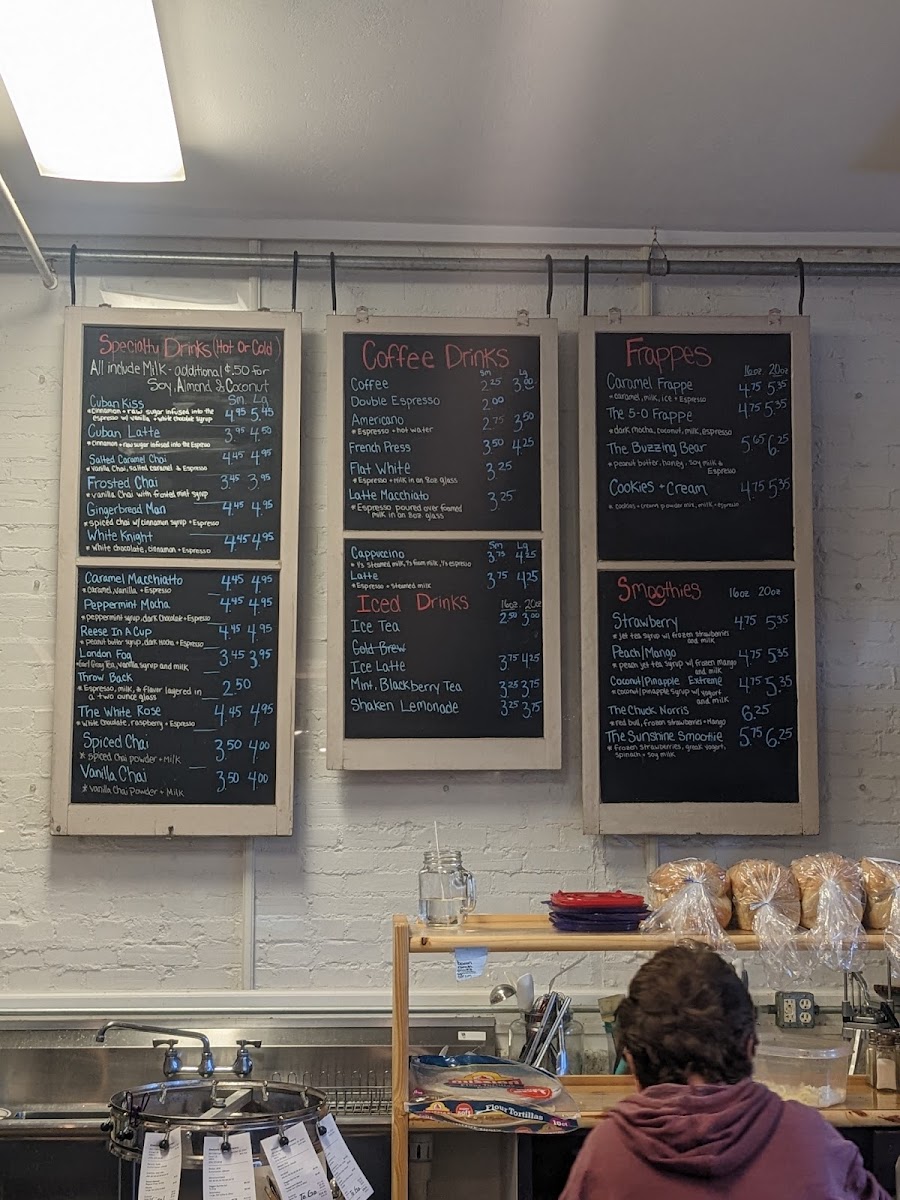 Specialty Drinks (Hot Or Cold)
All include Milk - additional $.50 for
Soy, Almond & Coconut
Sm. Lg
Cuban Kiss 4.95 5.45
*Cinnamon + raw sugar infused into the
espresso w/ vanilla + white chocolate syrup
Cuban Latte 3.95 4.50
*Cinnamon + raw sugar infused into the Espresso
Salted Caramel Chai 4.45 4.95
*Vanilla Chai, salted caramel & Espresso
Frosted Chai 3.45 3.95
*vanilla Chai with frosted mint syrup
Gingerbread Man 4.45 4.95
*spiced chai w/ cinnamon syrup + Espresso
White Knight 4.45 4.95
*White chocolate, cinnamon + Espresso
Caramel Macchiatto 4.45 4.95
*Caramel, vanilla + Espresso
Peppermint Mocha 4.45 4.95
*peppermint syrup, dark Chocolate + Espresso
Reese In A Cup 4.45 4.95
*peanut butter syrup, dark mocha + Espresso
London Fog 3.45 3.95
*Earl Gray Tea, vanilla syrup and milk
Throw Back 2.50
*Espresso, milk, & flavor layered in
a two ounce glass
The White Rose 4.45 4.95
*White Chocolate, raspberry + Espresso
Spiced Chai 3.50 4.00
*spiced Chai powder + Milk
Vanilla Chai 3.50 4.00
*Vanilla Chai Powder + Milk
Coffee Drinks
Sm Lg
Coffee 2.25 3.00
Double Espresso 2.00
Americano 2.75 3.50
*Espresso + hot water
French Press 3.50 4.25
Flat White 3.25
*Espresso + milk in an 8oz glass
Latte Macchiato 3.25
*Espresso poured over foamed
milk in an 8oz glass
Sm Lg
Cappuccino 3.75 4.25
*⅓ steamed milk, ⅓ foam milk, ⅓ espresso
Latte 3.75 4.25
*Espresso + steamed milk
Iced Drinks 16oz. 20oz
Ice Tea 2.50 3.00
Cold Brew
Ice Latte 3.75 4.25
Mint, Blackberry Tea 3.25 3.75
Shaken Lemonade 3.25 3.75
Frappes
16oz 20oz
Caramel Frappe 4.75 5.35
*caramel, milk, ice + Espresso
The 5-0 Frappe 4.75 5.35
*dark mocha, coconut, milk, espresso
The Buzzing Bear 5.65 6.25
*peanut butter, honey, soy milk &
Espresso
Cookies + Cream 4.75 5.35
*cookies + cream powder mix, milk + espresso
Smoothies 16oz 20oz
Strawberry 4.75 5.35
*Jet tea syrup w/ frozen strawberries
and milk
Peach/Mango 4.75 5.35
*peach jet tea syrup w/ frozen mango
and milk
Coconut/Pineapple Extreme 4.75 5.35
*coconut/pineapple syrup w/ yogurt
and milk
The Chuck Norris 6.25
*red bull, frozen strawberries + Mango
The Sunshine Smootiie 5.75 6.25
*frozen strawberries, greek yogurt,
spinach + soy milk
MISSION
Flour Tortillas
10ct
To Go